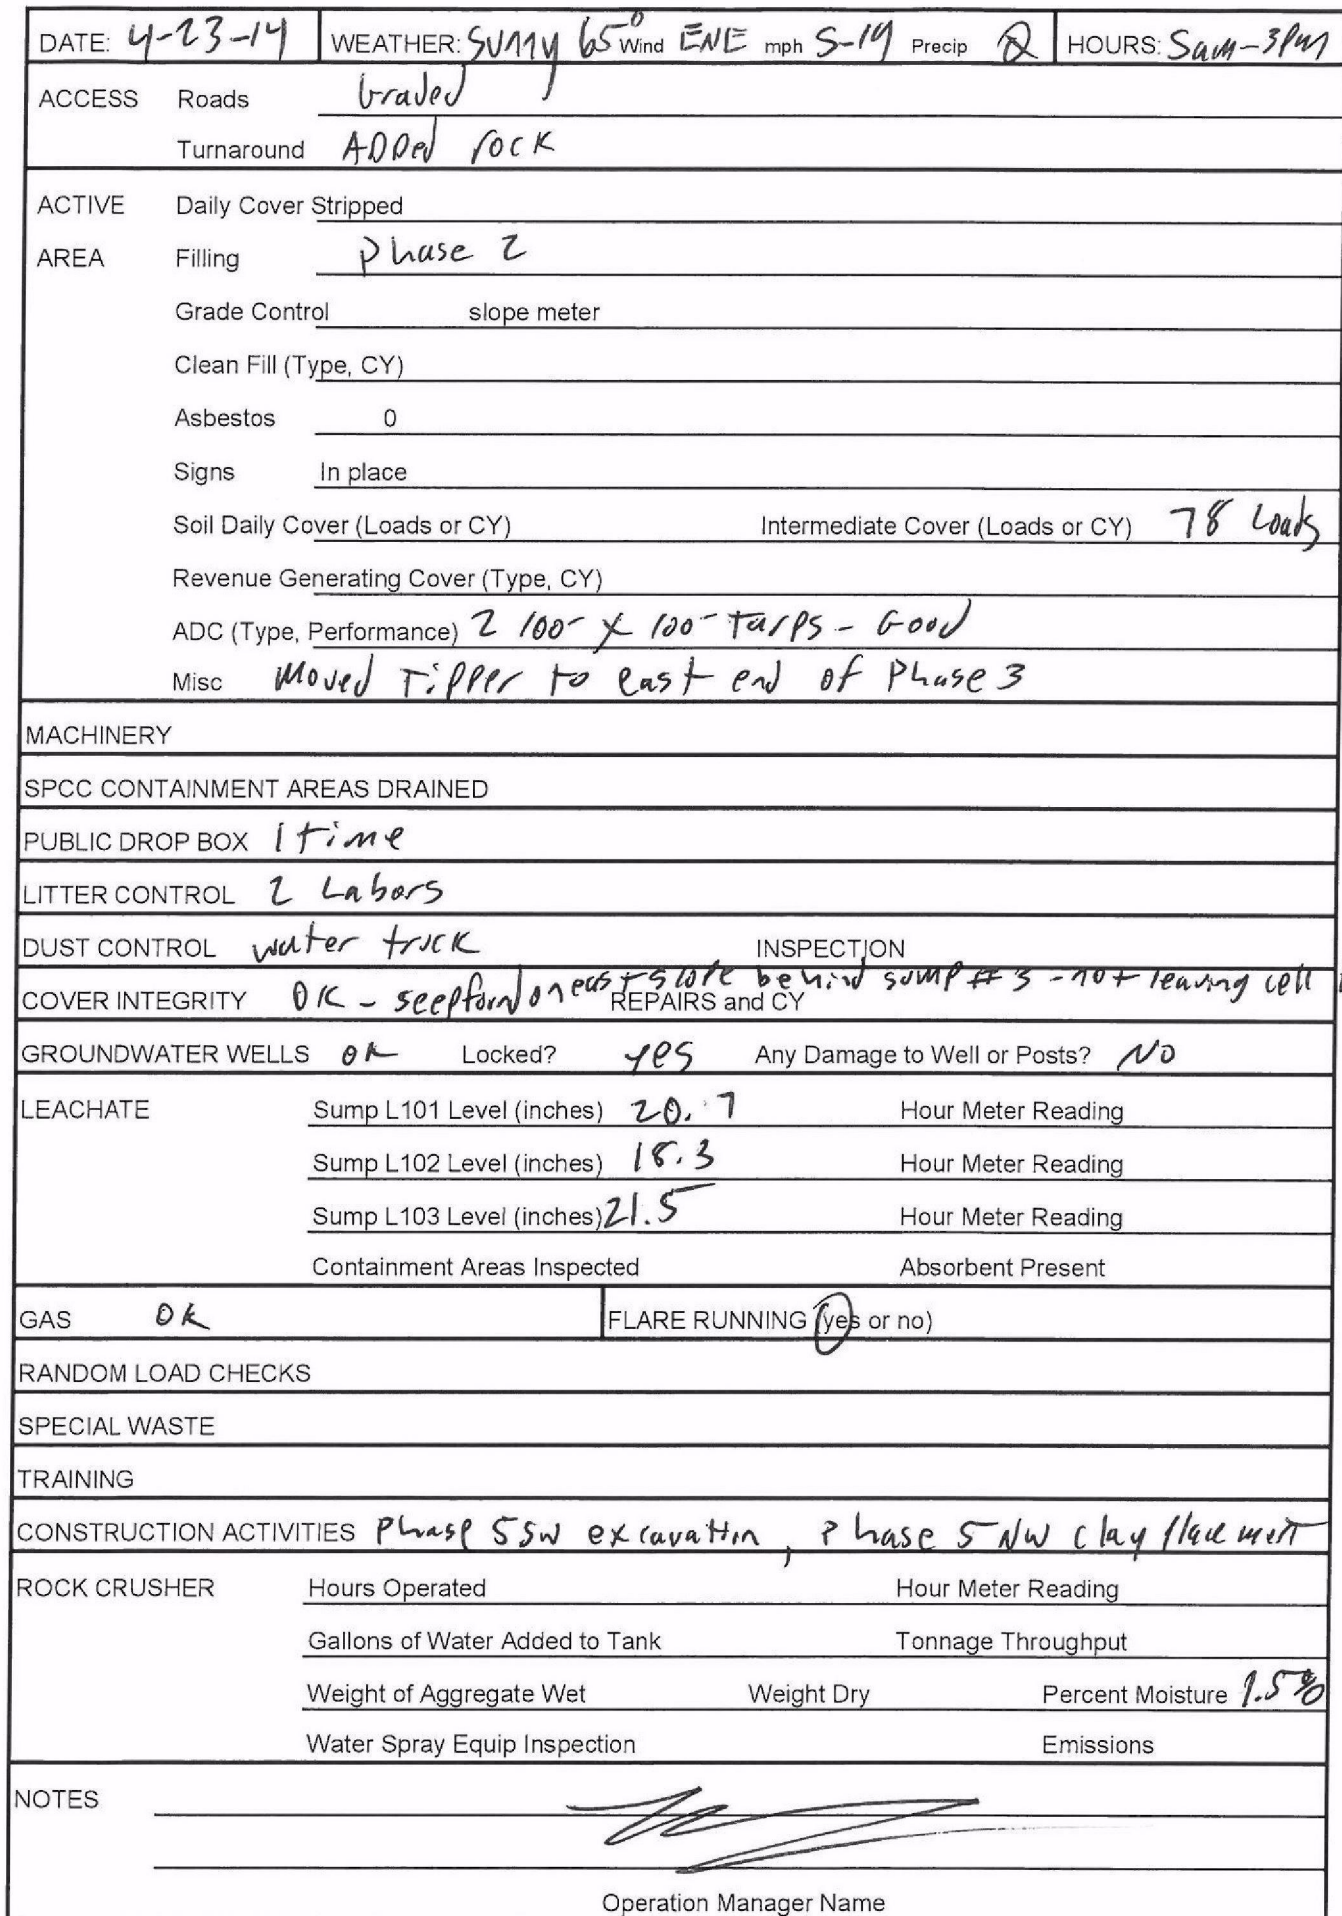 DATE: 4-23-14 WEATHER: SUNNY 65° Wind ENE mph 5-19 Precip 0 HOURS: 5am-3Pm
ACCESS Roads Graded
Turnaround ADDed rock
ACTIVE Daily Cover Stripped
AREA Filling Phase 2
Grade Control slope meter
Clean Fill (Type, CY)
Asbestos 0
Signs In place
Soil Daily Cover (Loads or CY) Intermediate Cover (Loads or CY) 78 Loads
Revenue Generating Cover (Type, CY)
ADC (Type, Performance) 2 100- x 100- Tarps - Good
Misc Moved Tipper to east end of Phase 3
MACHINERY
SPCC CONTAINMENT AREAS DRAINED
PUBLIC DROP BOX 1 time
LITTER CONTROL 2 Labors
DUST CONTROL water truck INSPECTION
COVER INTEGRITY OK - seep found on east slope behind sump #3 - not leaving cell
REPAIRS and CY
GROUNDWATER WELLS OK Locked? yes Any Damage to Well or Posts? NO
LEACHATE Sump L101 Level (inches) 20.7 Hour Meter Reading
Sump L102 Level (inches) 18.3 Hour Meter Reading
Sump L103 Level (inches) 21.5 Hour Meter Reading
Containment Areas Inspected Absorbent Present
GAS OK FLARE RUNNING (yes or no)
RANDOM LOAD CHECKS
SPECIAL WASTE
TRAINING
CONSTRUCTION ACTIVITIES Phase 5 SW excavation, Phase 5 NW clay placment
ROCK CRUSHER Hours Operated Hour Meter Reading
Gallons of Water Added to Tank Tonnage Throughput
Weight of Aggregate Wet Weight Dry Percent Moisture 1.5%
Water Spray Equip Inspection Emissions
NOTES
Operation Manager Name